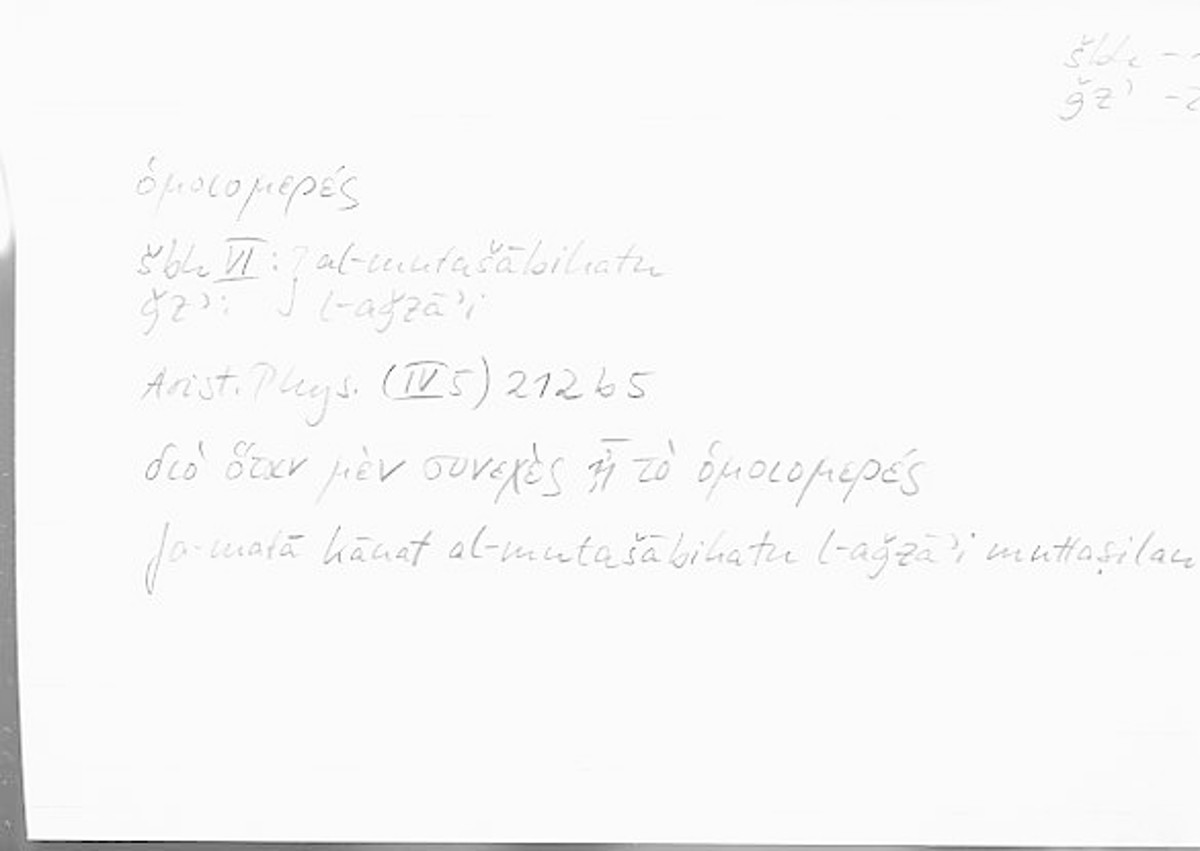 šbh -
ǧzʾ -2
ὁμοιομερές
šbh VI: al-mutašābihatu
ǧzʾ: l-aǧzāʾi
Arist. Phys. (IV 5) 212 b 5
διὸ ὅταν μὲν συνεχὲς ᾖ τὸ ὁμοιομερές
fa-matā kānat al-mutašābihatu l-aǧzāʾi muttaṣilan